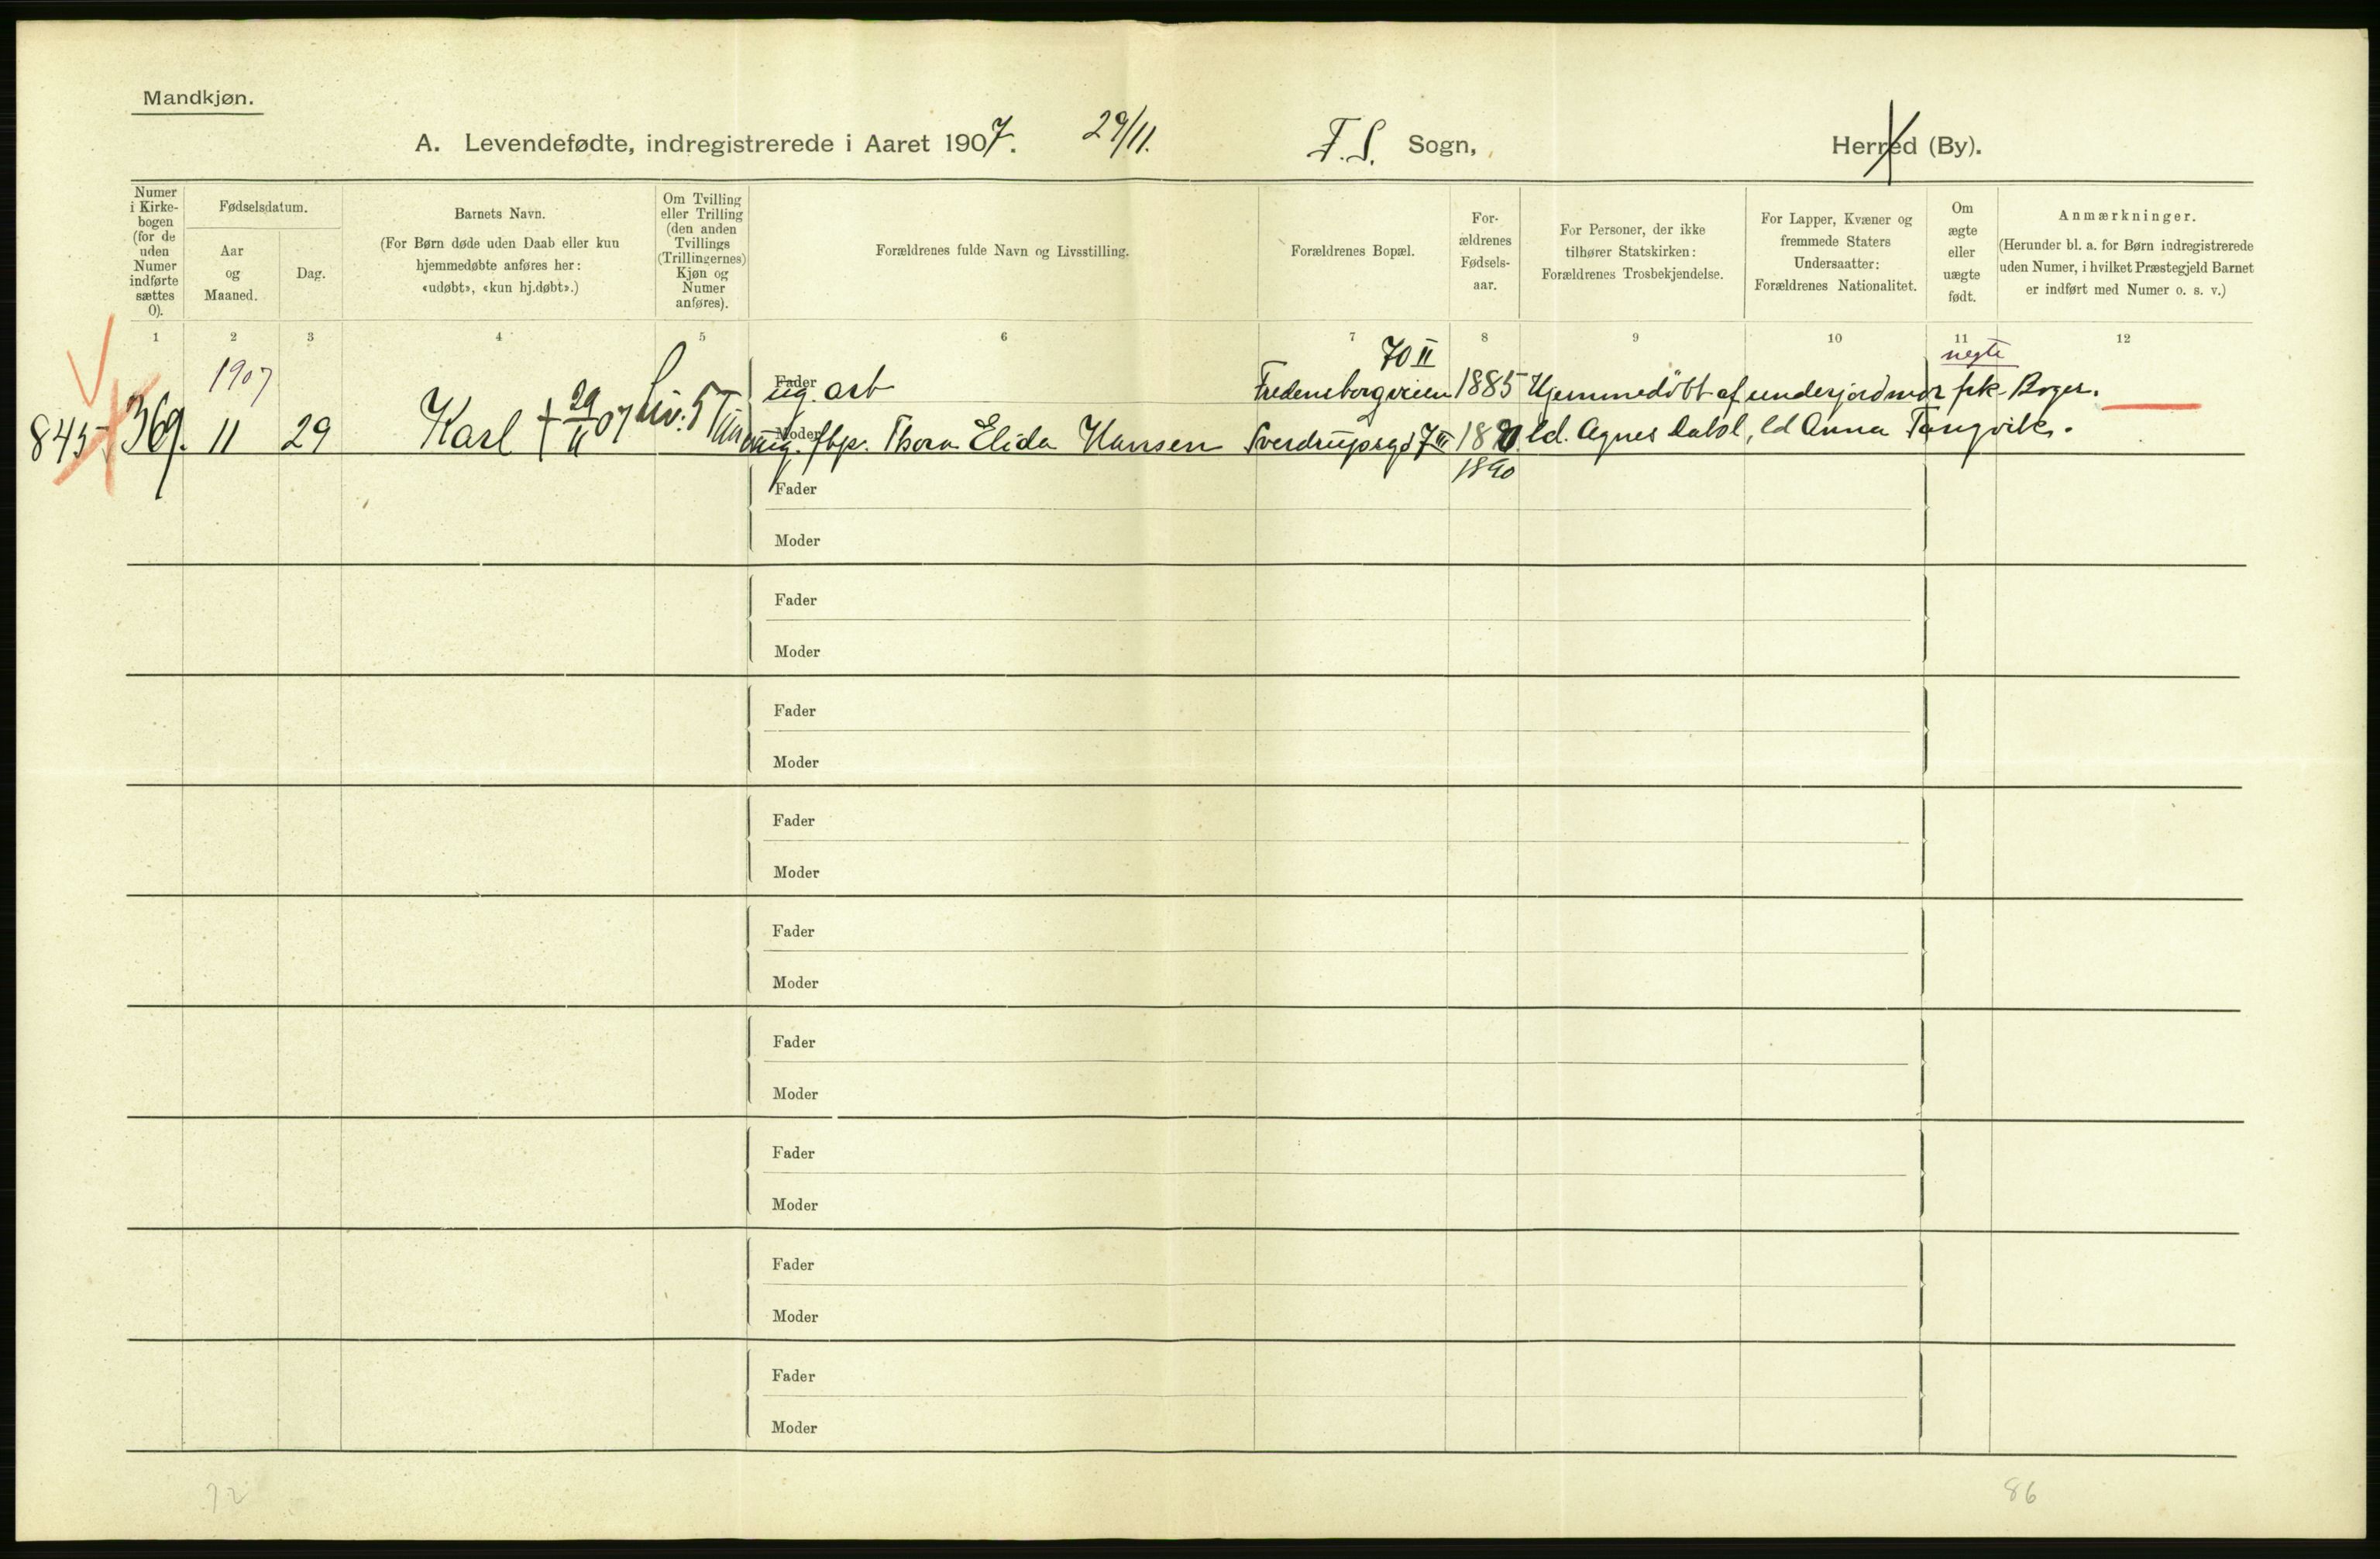 Mandkjøn.
A. Levendefødte, indregistrerede i Aaret 1907. 29/11. F. S. Sogn, Herred (By).
Numer i Kirke-bogen (for de uden Numer indførte sættes 0).
Fødselsdatum.
Aar og Maaned.
Dag.
Barnets Navn.
(For Børn døde uden Daab eller kun hjemmedøbte anføres her: «udøbt», «kun hj.døbt».)
Om Tvilling eller Trilling (den anden Tvillings (Trillingernes) Kjøn og Numer anføres).
Forældrenes fulde Navn og Livsstilling.
Forældrenes Bopæl.
For-ældrenes Fødsels-aar.
For Personer, der ikke tilhører Statskirken: Forældrenes Trosbekjendelse.
For Lapper, Kvæner og fremmede Staters Undersaatter: Forældrenes Nationalitet.
Om ægte eller uægte født.
Anmærkninger.
(Herunder bl. a. for Børn indregistrerede uden Numer, i hvilket Præstegjeld Barnet er indført med Numer o. s. v.)
1 2 3 4 5 6 7 8 9 10 11 12
1907 70 II uegte
Fader ug. arb Fredensborgveien 1885 Hjemmedøbt af underjordmor frk. Boger.
845 369. 11 29 Karl † 29/11 07 Liv: 5 Moder ug. fbp. Thora Elida Hansen Sverdrupsgd 7 III 18 ld. Agnes Dahl, ld Anna Tangvik.
1890
Fader
Moder
Fader
Moder
Fader
Moder
Fader
Moder
Fader
Moder
Fader
Moder
Fader
Moder
Fader
Moder
Fader
Moder
72 86